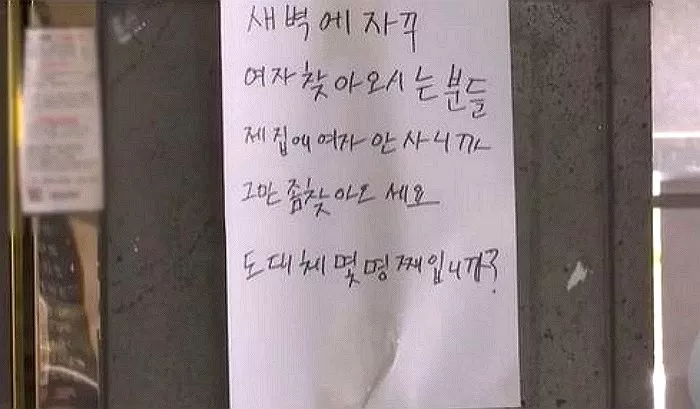 새벽에 자꾸
여자찾아오시는분들
제집에여자 안사니까
그만좀찾아오세요
도대체몇명째입니까?